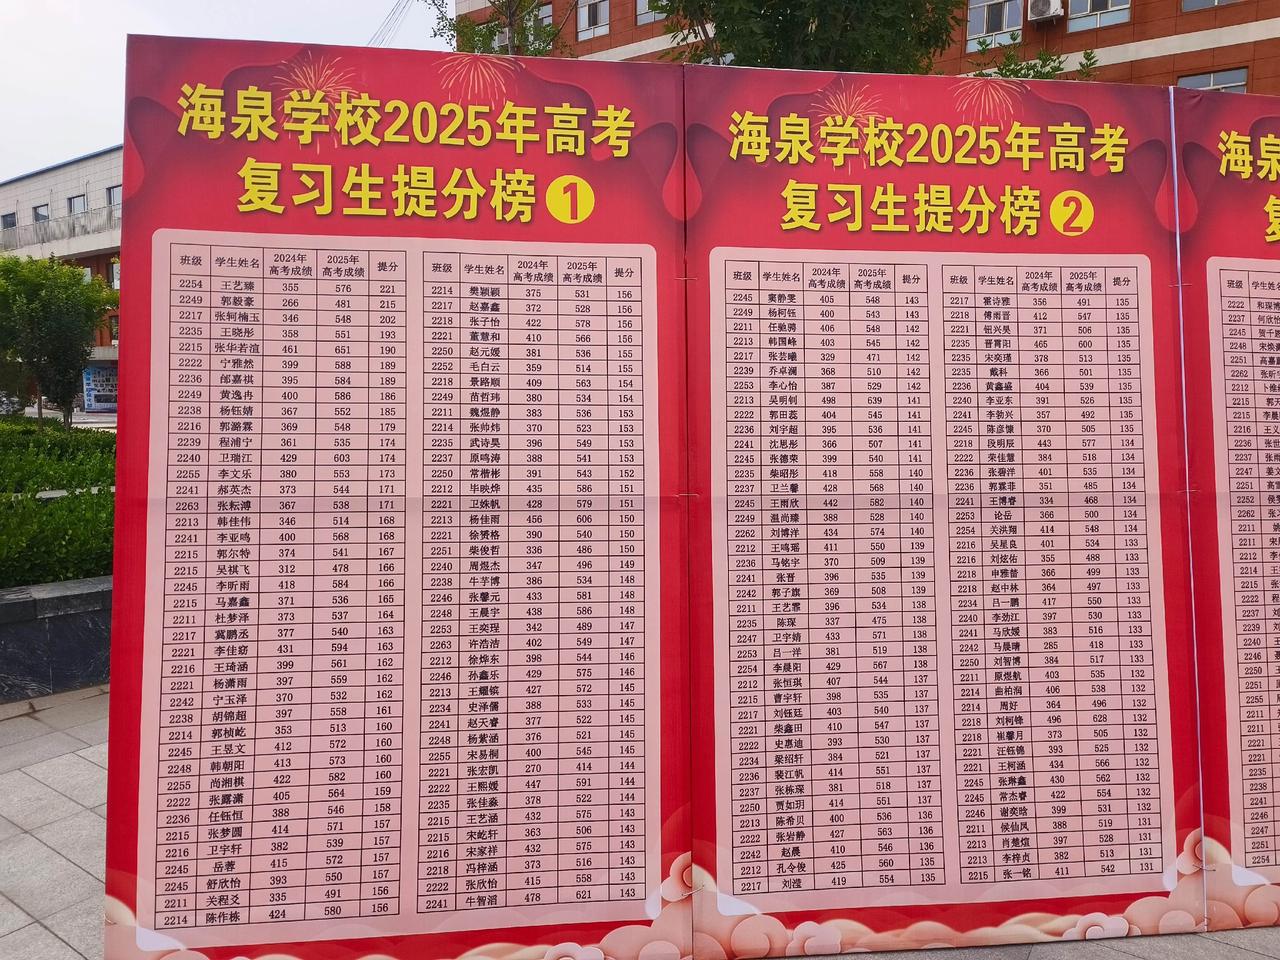 海泉学校2025年高考
复习生提分榜1
班级 学生姓名 2024年高考成绩 2025年高考成绩 提分
2254 王艺臻 355 576 221
2249 郭毅豪 266 481 215
2217 张轲楠玉 346 548 202
2235 王晓彤 358 551 193
2215 张华若渲 461 651 190
2222 宁雅然 399 588 189
2236 邰嘉祺 395 584 189
2249 黄逸冉 400 586 186
2238 杨钰婧 367 552 185
2216 郭潞霖 369 548 179
2239 程浦宁 361 535 174
2240 卫瑞江 429 603 174
2255 李文乐 380 553 173
2241 郝英杰 373 544 171
2263 张耘溥 367 538 171
2213 韩佳伟 346 514 168
2241 李亚鸣 400 568 168
2215 郭尔特 374 541 167
2215 吴祺飞 312 478 166
2245 李昕雨 418 584 166
2215 马嘉鑫 371 536 165
2211 杜梦泽 373 537 164
2217 冀鹏丞 377 540 163
2221 李佳窈 431 594 163
2216 王琦涵 399 561 162
2221 杨潇雨 397 559 162
2242 宁玉泽 370 532 162
2238 胡锦超 397 558 161
2214 郭桢屹 353 513 160
2245 王昱文 412 572 160
2248 韩朝阳 413 573 160
2255 尚湘棋 422 582 160
2222 张露潇 405 564 159
2236 任钰恒 388 546 158
2215 张梦圆 414 571 157
2216 卫宇轩 382 539 157
2245 岳蓉 415 572 157
2245 舒欣怡 393 550 157
2211 关程爻 335 491 156
2214 陈作栋 424 580 156
班级 学生姓名 2024年高考成绩 2025年高考成绩 提分
2214 樊颖颖 375 531 156
2217 赵嘉鑫 372 528 156
2218 张子怡 422 578 156
2221 董慧和 410 566 156
2250 赵元媛 381 536 155
2252 毛白云 359 514 155
2218 景路顺 409 563 154
2249 苗哲玮 380 534 154
2211 魏煜静 383 536 153
2214 张帅炜 370 523 153
2235 武诗昊 396 549 153
2237 原鸣涛 388 541 153
2250 常楷彬 391 543 152
2212 毕映烨 435 586 151
2221 卫姝帆 428 579 151
2213 杨佳雨 456 606 150
2221 徐赟格 390 540 150
2251 柴俊哲 336 486 150
2240 周煜杰 347 496 149
2238 牛芊博 386 534 148
2246 张馨元 433 581 148
2248 王晨宇 438 586 148
2253 王奕珵 342 489 147
2263 许浩洁 402 549 147
2212 徐烨东 398 544 146
2246 孙鑫乐 429 575 146
2213 王耀缤 427 572 145
2234 史泽儒 388 533 145
2241 赵天睿 377 522 145
2248 杨紫涵 376 521 145
2255 宋易桐 400 545 145
2221 张宏凯 270 414 144
2222 王熙媛 447 591 144
2235 张佳淼 378 522 144
2215 王艺涵 432 575 143
2215 宋屹轩 363 506 143
2216 宋家祥 432 575 143
2218 冯梓涵 373 516 143
2222 张欣怡 415 558 143
2241 牛智滔 478 621 143
海泉学校2025年高考
复习生提分榜2
班级 学生姓名 2024年高考成绩 2025年高考成绩 提分
2245 窦静雯 405 548 143
2249 杨柯钰 400 543 143
2211 任驰骋 406 548 142
2213 韩国峰 403 545 142
2217 张芸曦 329 471 142
2239 乔卓澜 368 510 142
2253 李心怡 387 529 142
2213 吴明钊 498 639 141
2222 郭田蕊 404 545 141
2236 刘宇超 395 536 141
2241 沈思彤 366 507 141
2245 张德荣 399 540 141
2235 柴昭彤 418 558 140
2237 卫兰馨 428 568 140
2245 王雨欣 442 582 140
2249 温尚臻 388 528 140
2262 刘博洋 434 574 140
2212 王鸣瑶 411 550 139
2236 马铭宇 370 509 139
2241 张晋 396 535 139
2242 郭子旗 369 508 139
2211 王艺霏 396 534 138
2235 陈琛 337 475 138
2247 卫宇婧 433 571 138
2253 吕一洋 381 519 138
2254 李晨阳 429 567 138
2212 张恒琪 407 544 137
2215 曹宇轩 398 535 137
2217 刘钰廷 403 540 137
2221 柴鑫田 410 547 137
2222 史惠迪 393 530 137
2234 梁绍轩 384 521 137
2236 裴江帆 414 551 137
2237 张栋琛 381 518 137
2250 贾如玥 414 551 137
2213 陈希贝 400 536 136
2222 张岩静 427 563 136
2242 赵晨 410 546 136
2212 孔令俊 425 560 135
2217 刘滢 419 554 135
班级 学生姓名 2024年高考成绩 2025年高考成绩 提分
2217 霍诗雅 356 491 135
2218 傅雨晋 412 547 135
2221 钮兴昊 371 506 135
2235 晋霄阳 465 600 135
2235 宋奕瑾 378 513 135
2235 戴科 366 501 135
2236 黄鑫盛 404 539 135
2240 李亚东 391 526 135
2241 李勃兴 357 492 135
2245 陈彦慷 370 505 135
2218 段明辰 443 577 134
2222 荣佳慧 384 518 134
2236 张碧洋 401 535 134
2236 郭霖菲 351 485 134
2241 王博睿 334 468 134
2253 论岳 366 500 134
2254 关洪翔 414 548 134
2216 吴星良 401 534 133
2216 刘炫佑 355 488 133
2218 申雅喆 366 499 133
2218 赵中林 364 497 133
2234 吕一鹏 417 550 133
2240 李劲江 397 530 133
2241 马欣媛 383 516 133
2242 马晨晴 285 418 133
2250 刘智博 384 517 133
2211 原煜航 403 535 132
2214 曲柏润 406 538 132
2214 周好 364 496 132
2218 刘柯锋 496 628 132
2218 崔馨月 373 505 132
2221 汪钰锦 393 525 132
2221 王柯涵 434 566 132
2245 张琳鑫 430 562 132
2245 常杰睿 422 554 132
2246 谢奕晗 399 531 132
2211 侯仙凤 388 519 131
2213 肖楚煊 397 528 131
2213 李梓贞 382 513 131
2215 张一铭 411 542 131
海泉
复
班级 学生姓名
2222
2237
2245
2248
2251
2262
2212
2215
2215
2216
2236
2237
2247
2251
2252
2262
2211
2211
2212
2214
2215
2222
2237
2239
2240